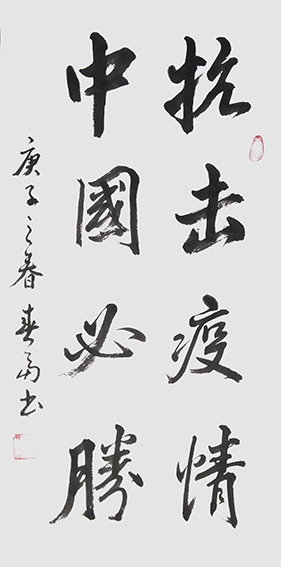 抗击疫情
中國必勝
庚子之春春勇书